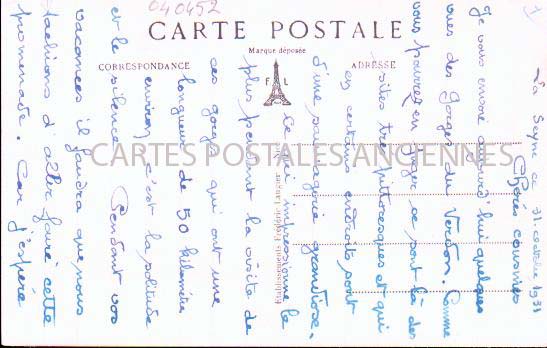 040452
CARTE POSTALE
Marque déposée
CORRESPONDANCE
F L
ADRESSE
Etablissements Frédéric Laugier
CARTES POSTALES ANCIENNES
1
La Seyne ce 31 octobre 1931
Chères cousines
Je vous envoie aujourd'hui quelques
vues des Gorges du Verdon. Comme
vous pourrez en juger ce sont là des
sites très pittoresques et qui
en certains endroits sont
d'une sauvagerie grandiose.
Ce qui impressionne le
plus pendant la visite de
ces gorges qui ont une
longueur de 50 kilomètres
environ, c'est la solitude
et le silence. Pendant vos
vacances il faudra que nous
tachions d'aller faire cette
promenade. Car j'espère